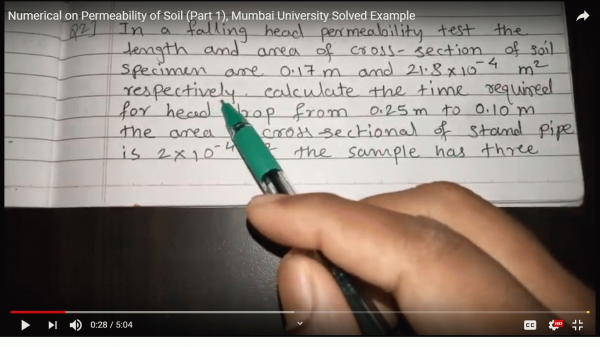 Numerical on Permeability of Soil (Part 1), Mumbai University Solved Example
Q2] In a falling head permeability test the
length and area of cross-section of soil
specimen are 0.17 m and 21.8×10⁻⁴ m²
respectively. calculate the time required
for head drop from 0.25m to 0.10 m
the area cross-sectional of stand pipe
is 2×10⁻⁴ the sample has three
0:28 / 5:04
CC HD